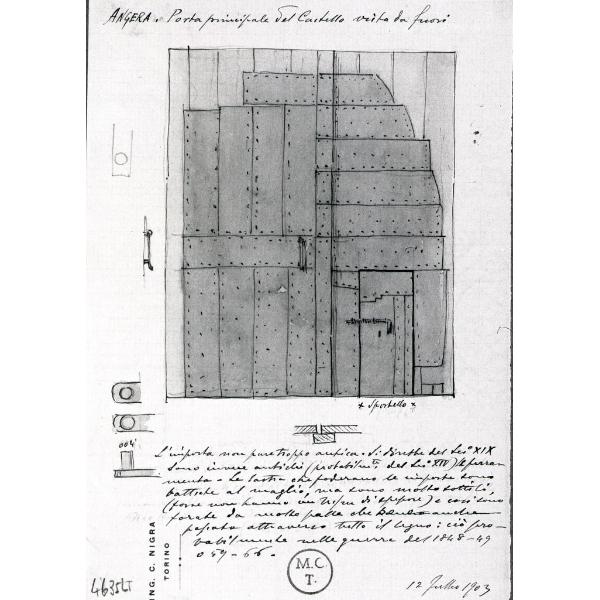 ANGERA. Porta principale del Castello vista da fuori
+ Sportello +
004
L'imposta non pure troppo antica. Si direbbe del Sec° XIX
sono invece antichi (probabilmte del Sec° XIV) le ferra
menta - Le lastre che foderano le imposte sono
battute al maglio, ma sono molto sottili
(forse non hanno un di spessore) e così sono
forate da molte palle che devono anche
passate attraverso tutto il legno: ciò pro
vabilmente nelle guerre del 1848-49
o 59 - 66.
ING. C. NIGRA
TORINO
M.C.
T.
4635LT
12 Luglio 1903